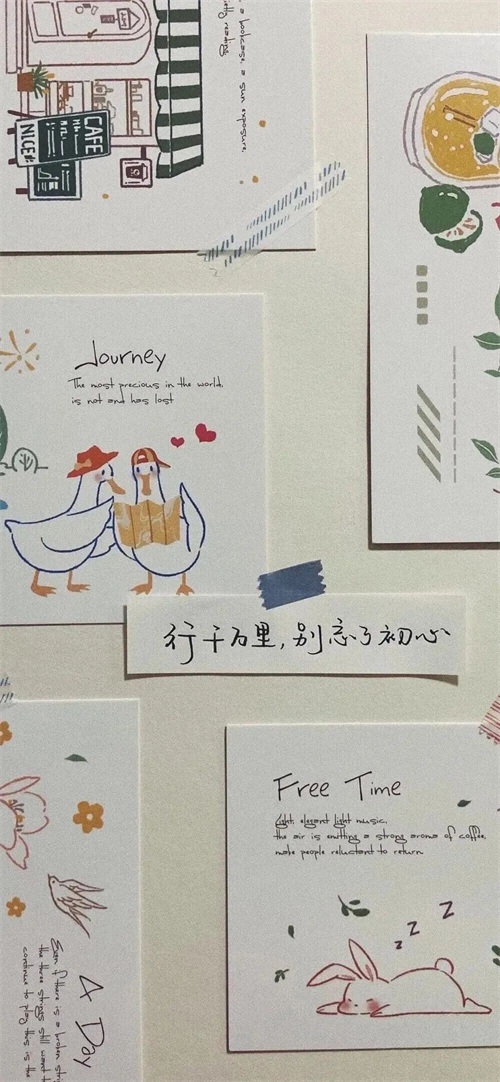 a bookcase, a sun exposure.
reading.
CAFE
NICE
Journey
The most precious in the world,
is not and has lost
行千万里，别忘了初心
Free Time
Light, elegant light music,
the air is emitting a strong aroma of coffee,
make people reluctant to return
z z z
A Day
Even if there is a broken
the three strings still want
continue to play this is the